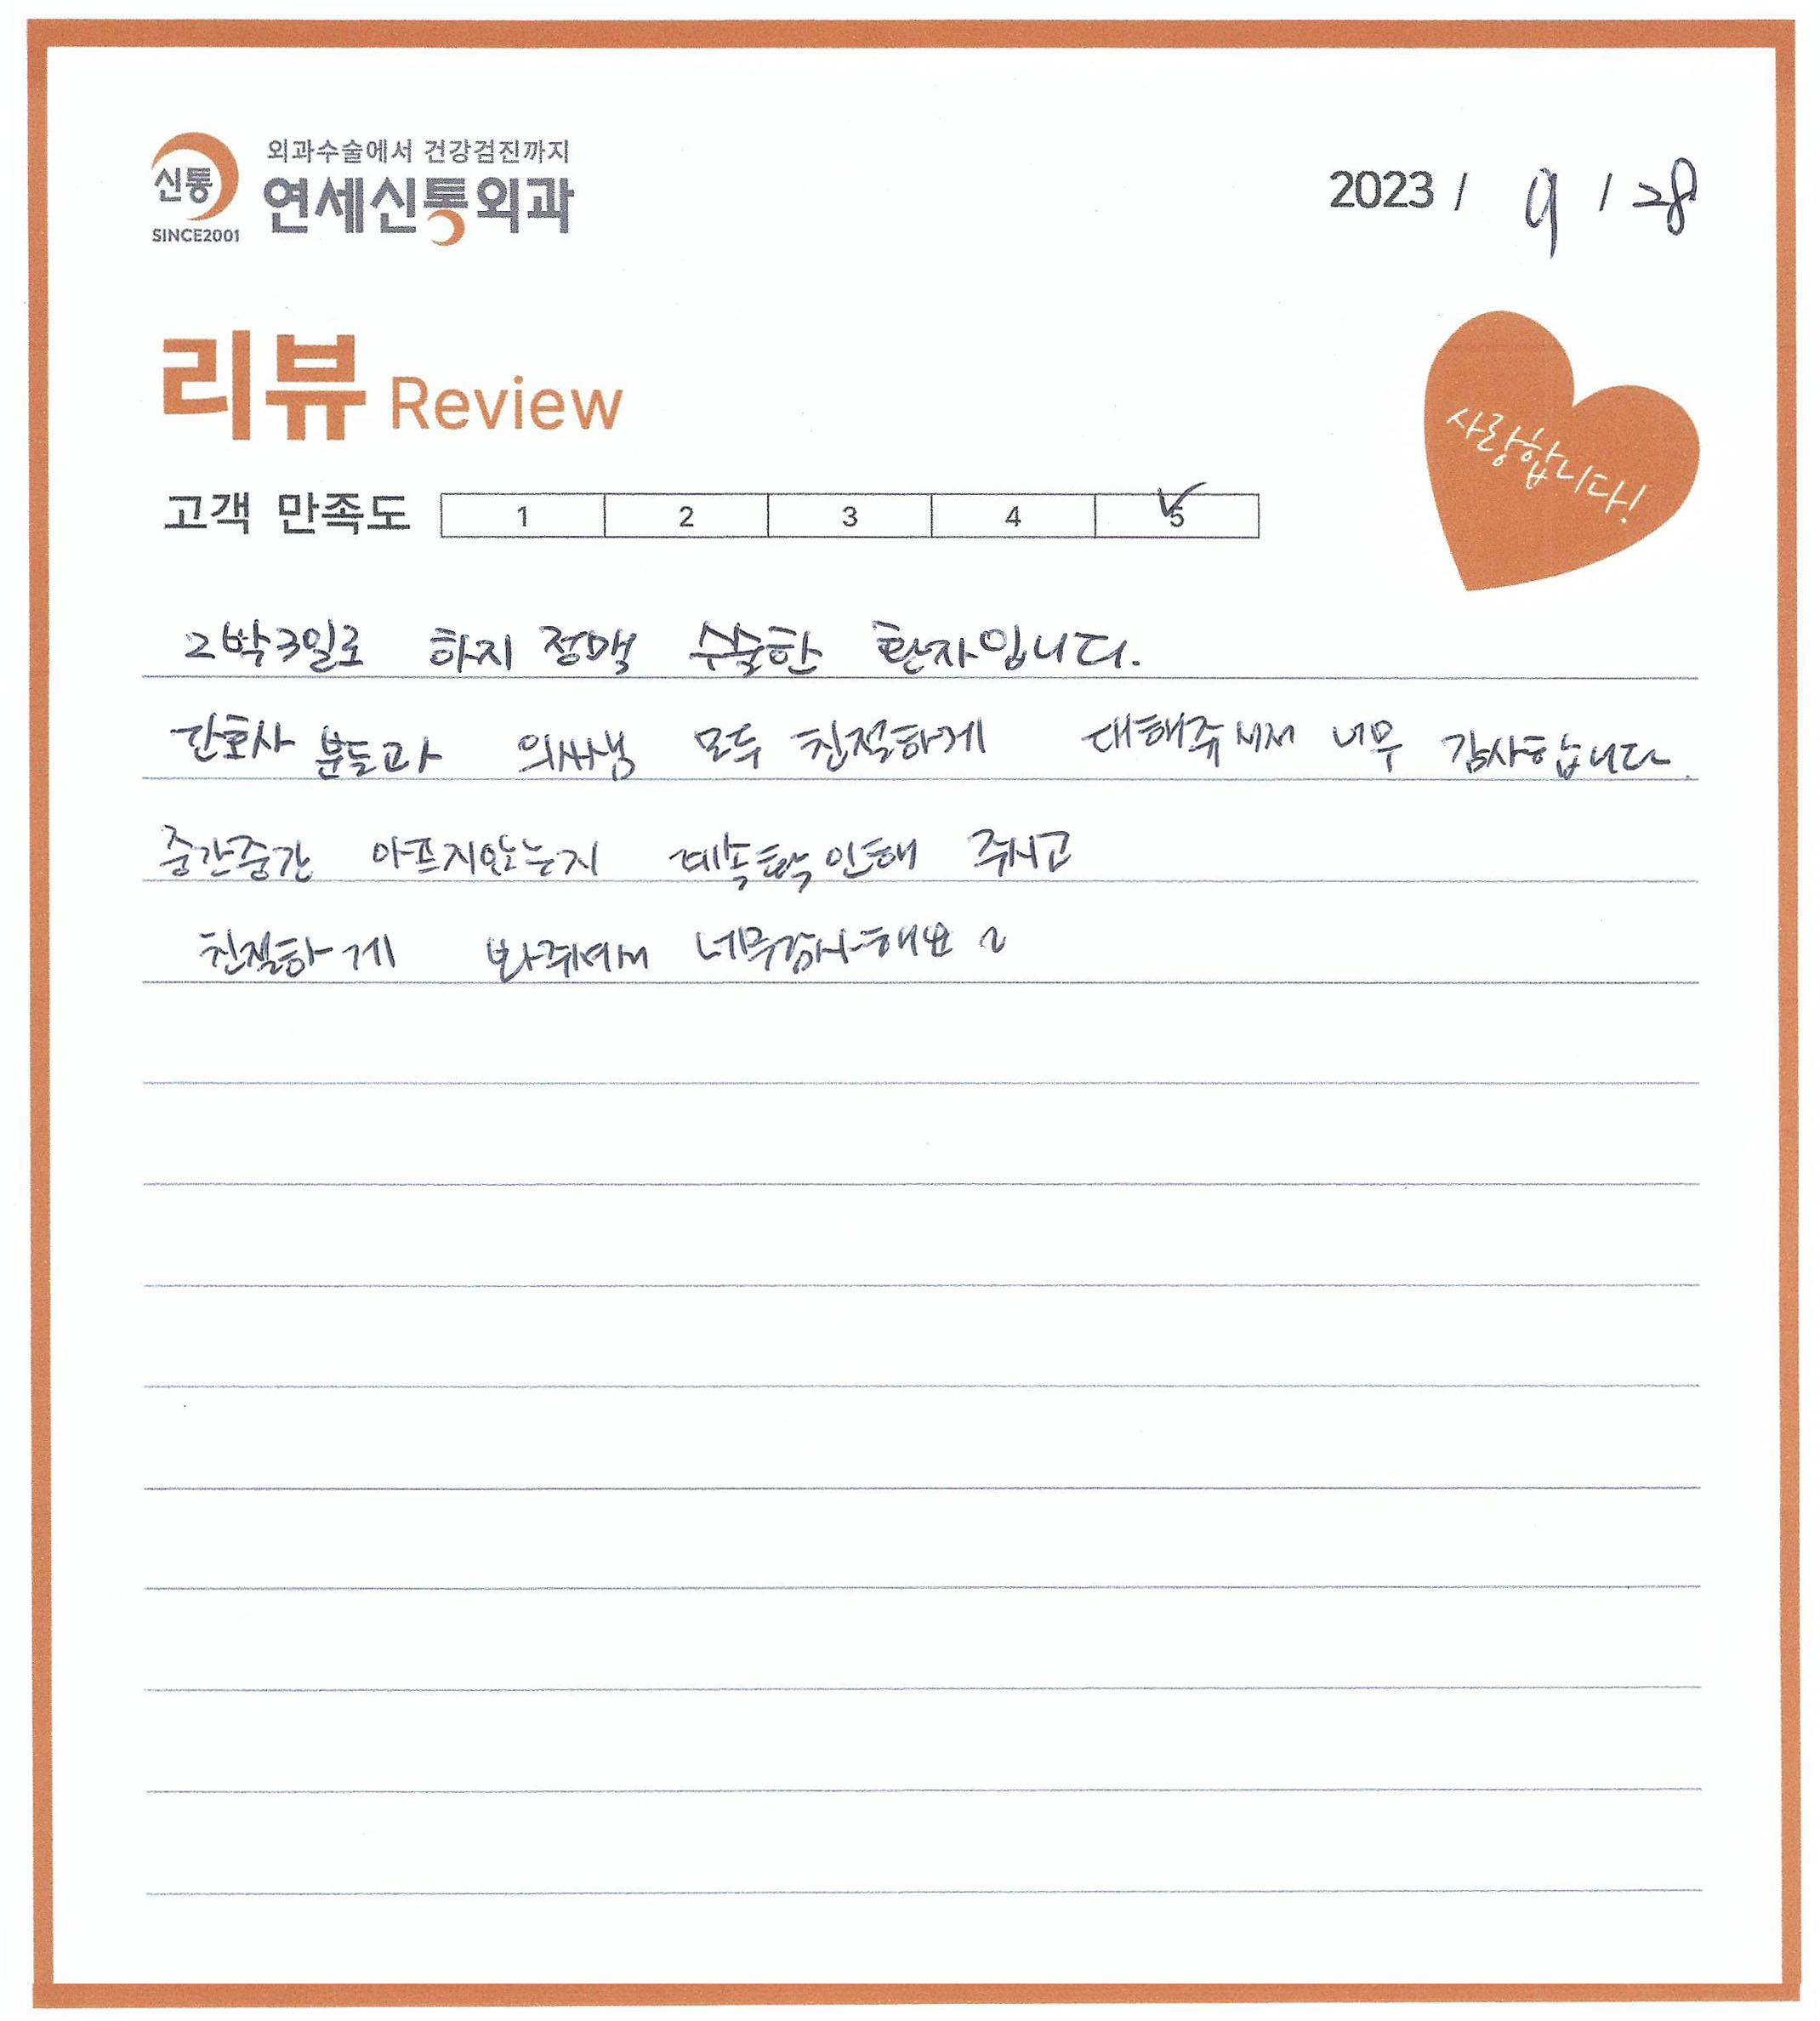 신통
SINCE2001
외과수술에서 건강검진까지
연세신통외과
2023 / 9 / 28
리뷰 Review
사랑합니다!
고객 만족도 1 2 3 4 5
2박3일로 하지 정맥 수술한 환자입니다.
간호사 분들과 의사쌤 모두 친절하게 대해주셔서 너무 감사합니다.
중간중간 아프지않는지 계속확인해 주시고
친절하게 봐주셔서 너무감사해요~